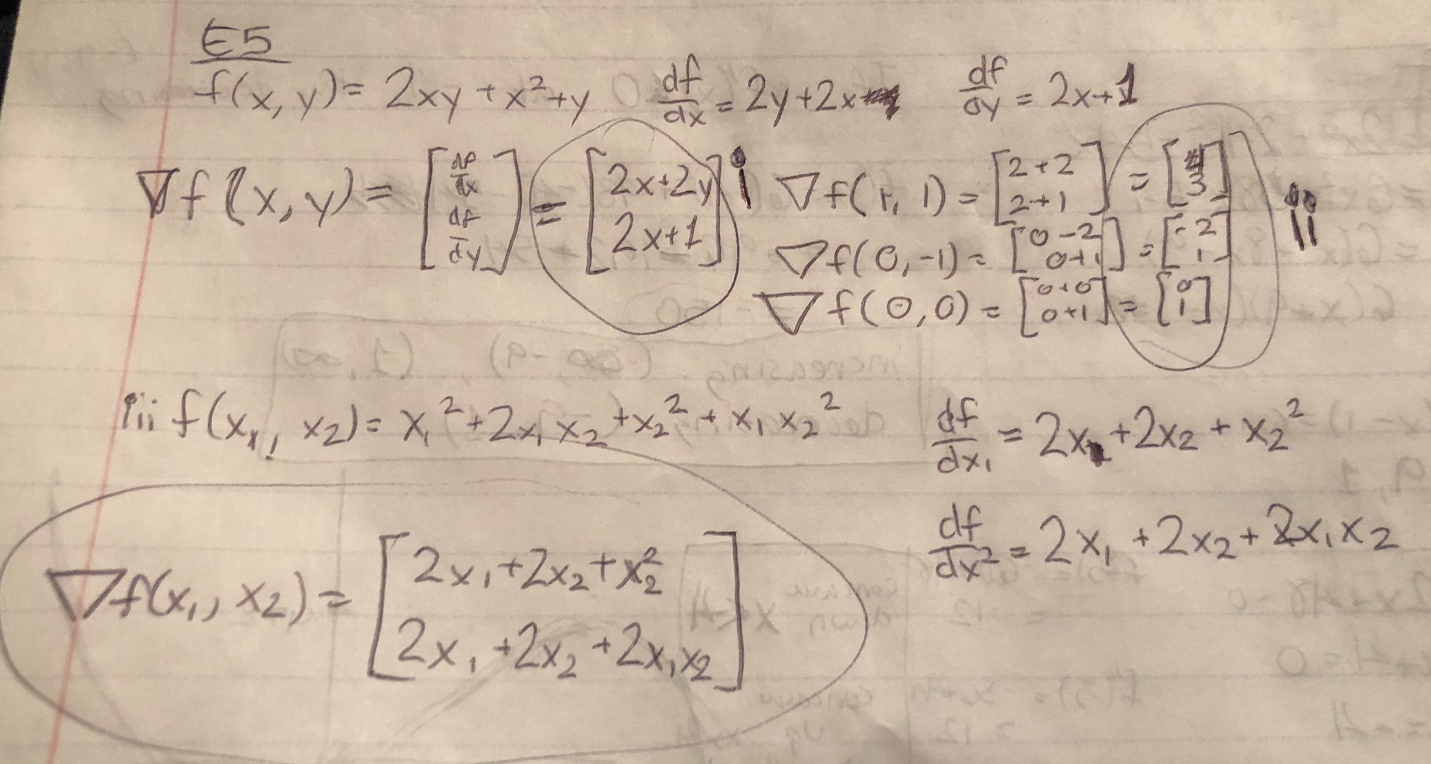 E5
f(x, y) = 2xy + x² + y   df/dx = 2y + 2x   df/dy = 2x + 1
∇f(x, y) = [df/dx; df/dy] = [2x+2y; 2x+1] i   ∇f(1, 1) = [2+2; 2+1] = [4; 3] ii
∇f(0, -1) = [0-2; 0+1] = [-2; 1]
∇f(0, 0) = [0+0; 0+1] = [0; 1]
iii f(x₁, x₂) = x₁² + 2x₁x₂ + x₂² + x₁x₂²   df/dx₁ = 2x₁ + 2x₂ + x₂²
df/dx² = 2x₁ + 2x₂ + 2x₁x₂
∇f(x₁, x₂) = [2x₁+2x₂+x₂²; 2x₁+2x₂+2x₁x₂]